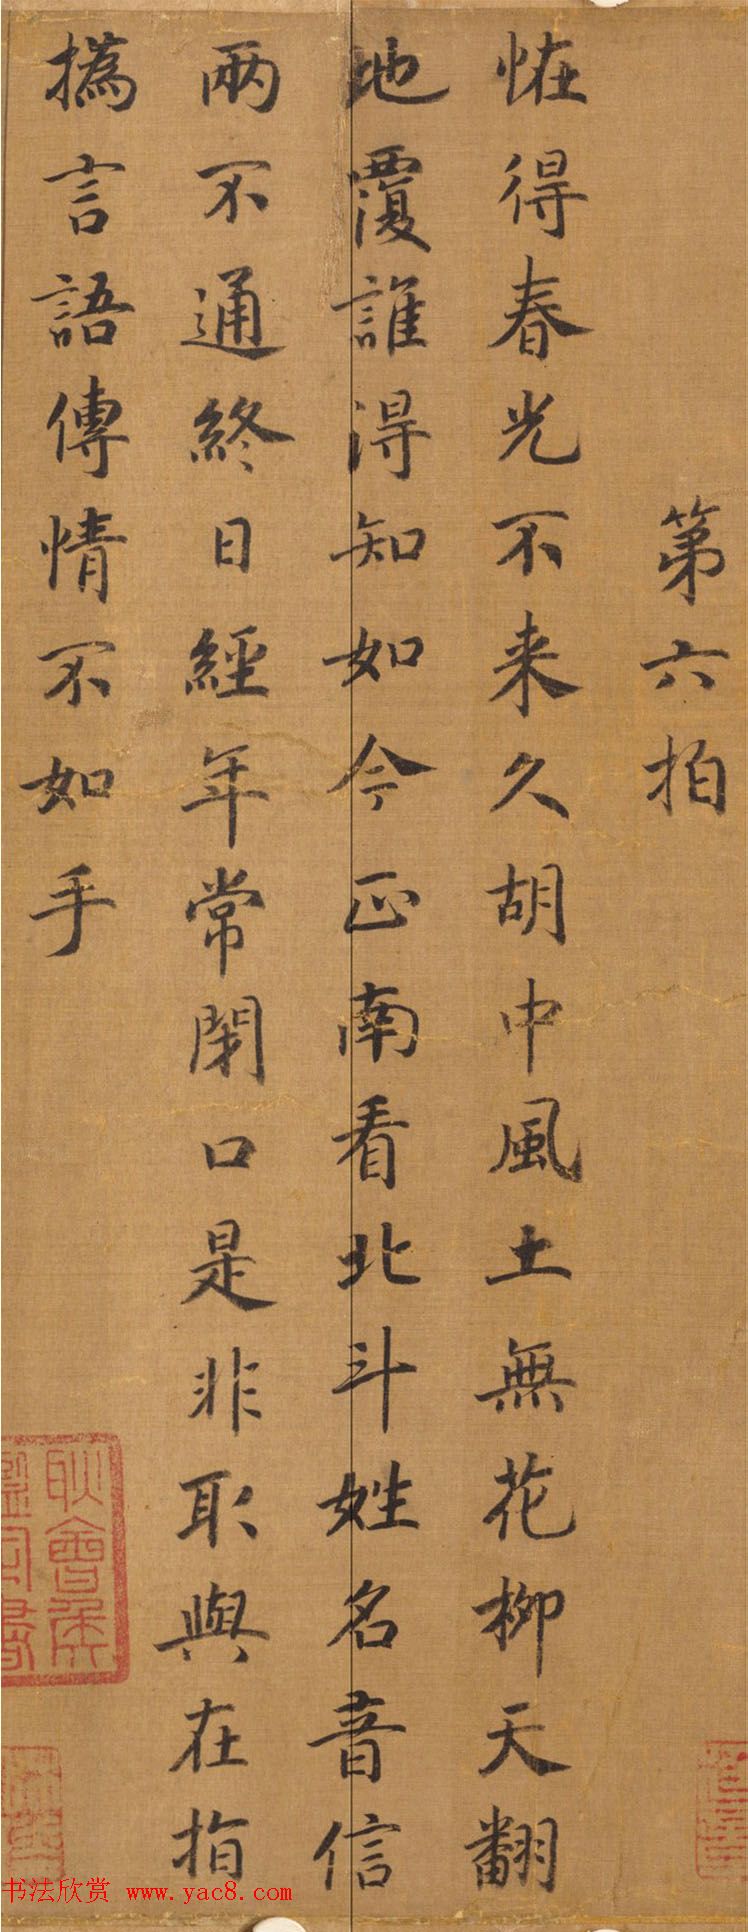 第六拍
恠得春光不来久胡中風土無花柳天翻
地覆誰得知如今正南看北斗姓名音信
兩不通終日經年常閉口是非取與在指
撝言語傳情不如手
耿會侯
書法欣赏 www.yac8.com